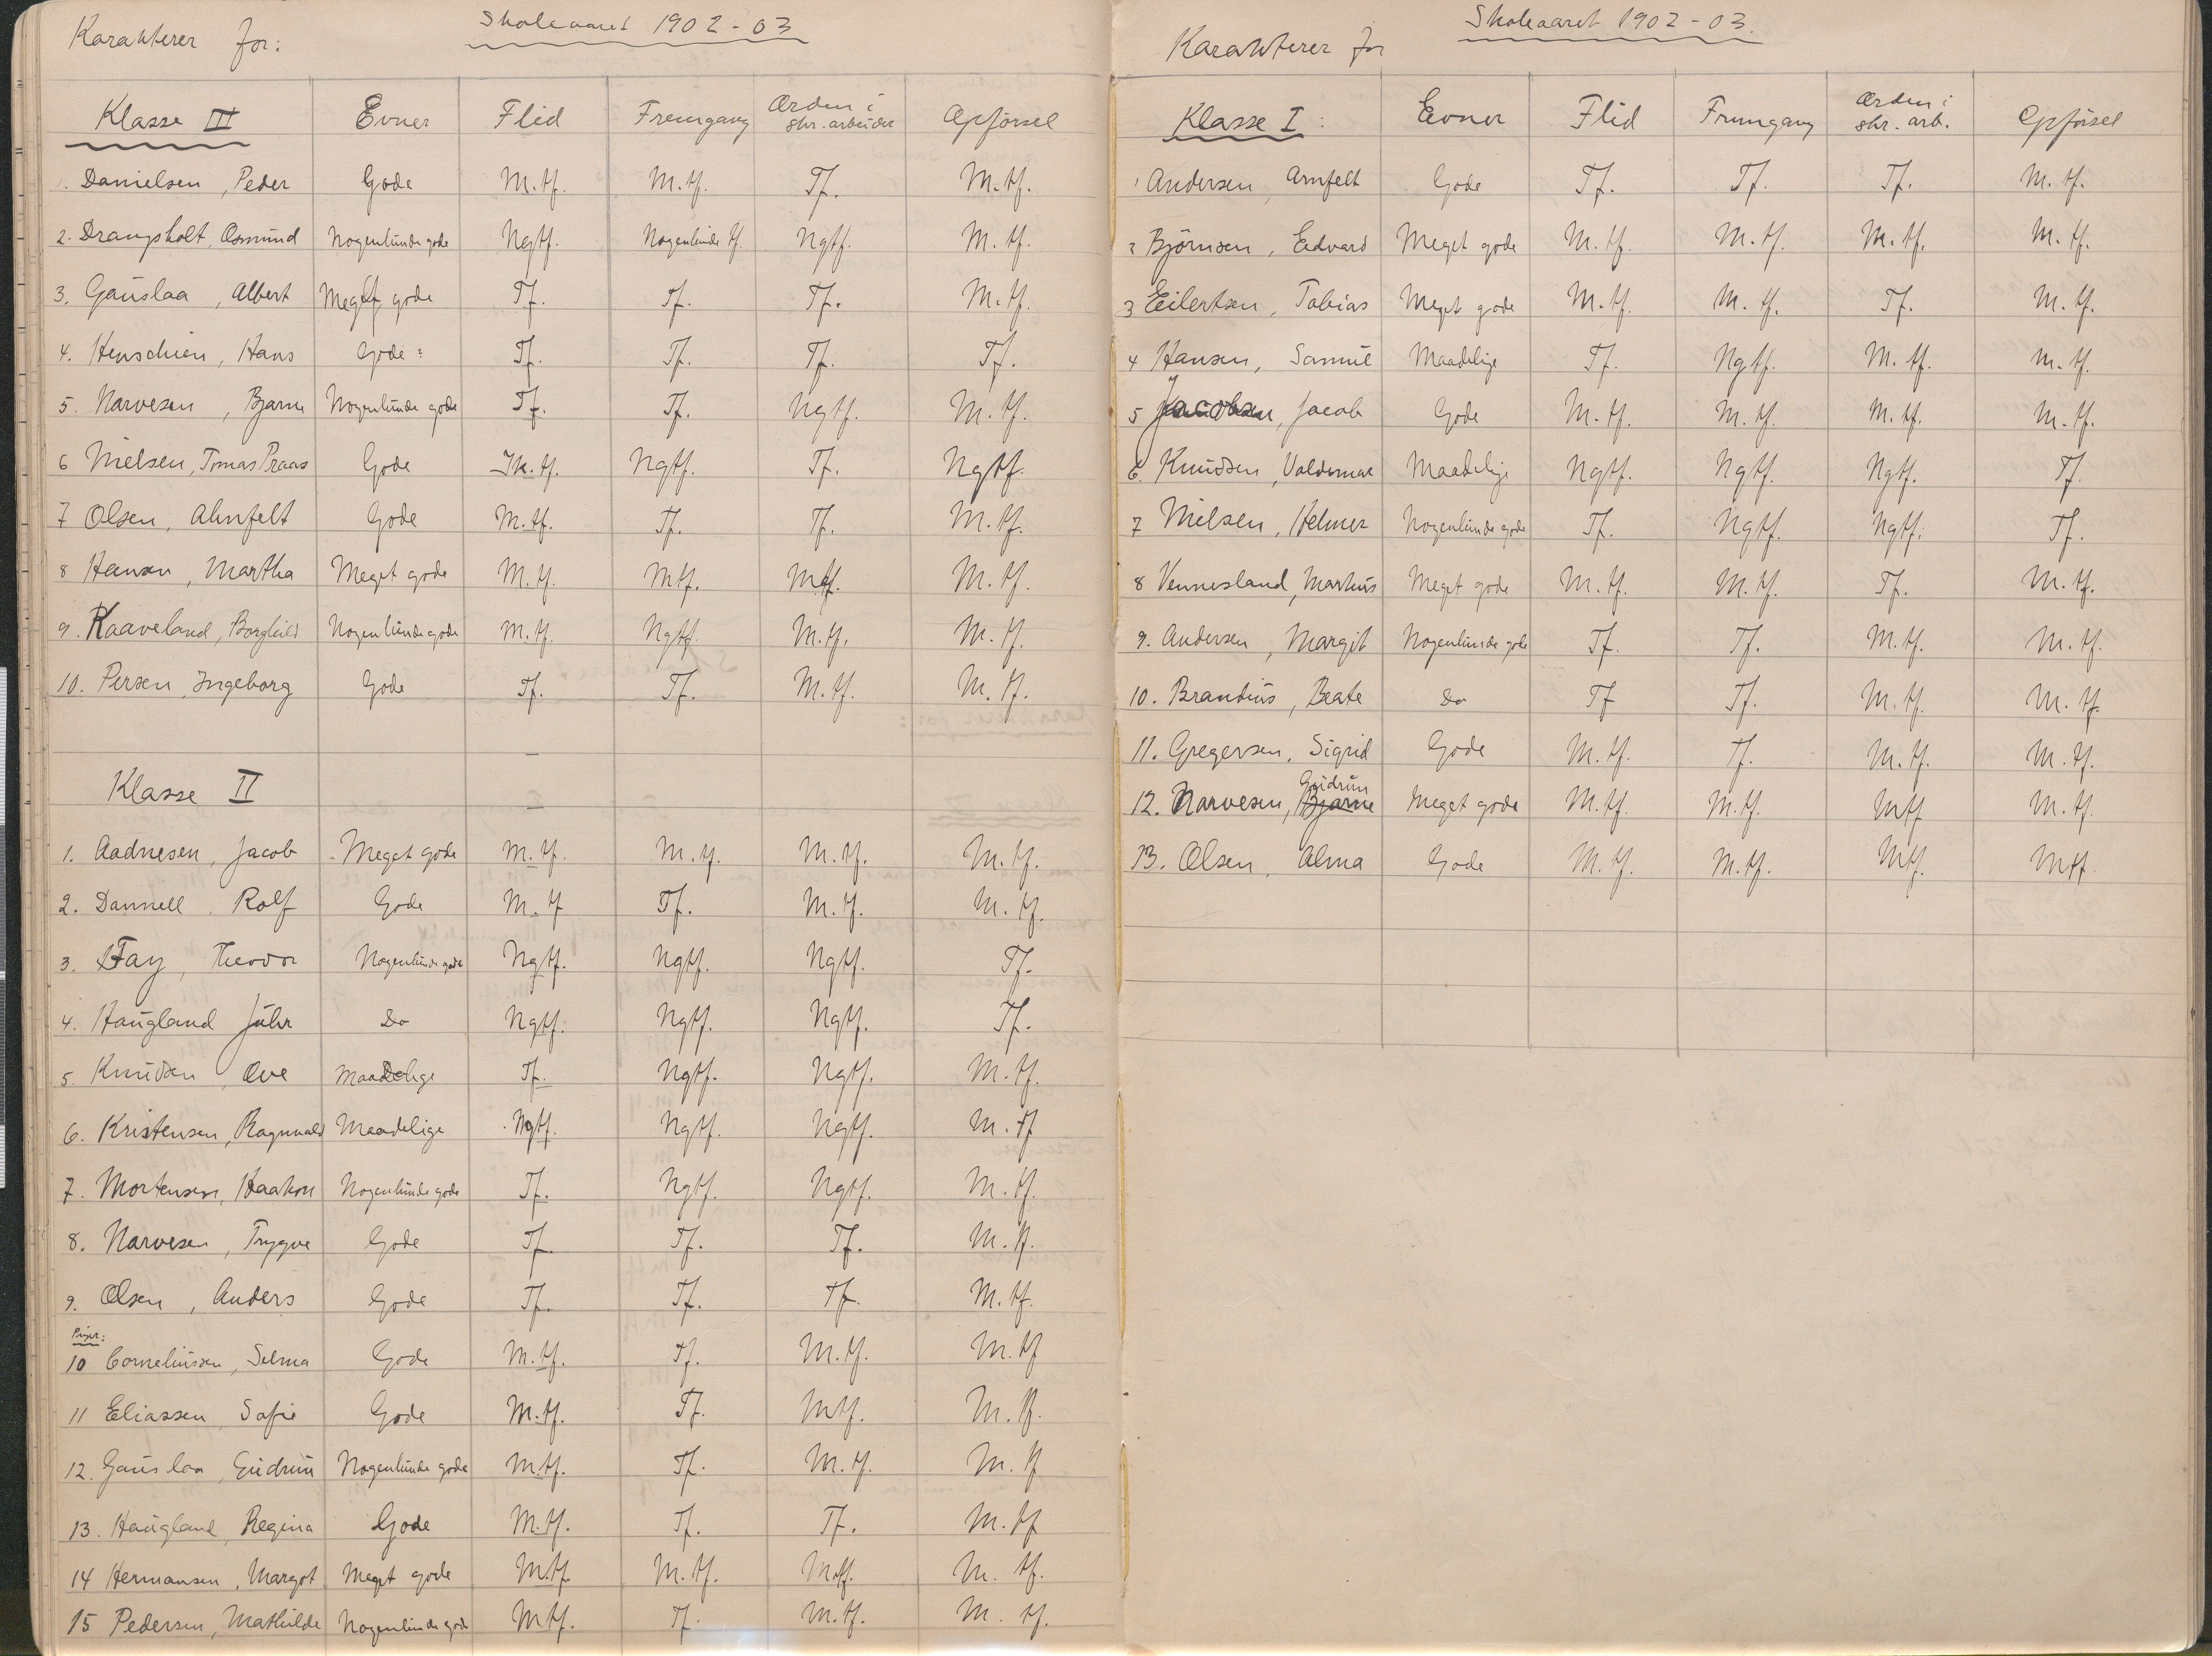 Karakterer for: Skoleaaret 1902-03
Klasse III Evner Flid Fremgang Orden i skr. arbeider Opførsel
1. Danielsen, Peder Gode M.tf. M.tf. Tf. M.tf.
2. Drangsholt, Osmund Nogenlunde gode Ngtf. Nogenlunde tf. Ngtf. M.tf.
3. Gauslaa, Albert Meget gode Tf. Tf. Tf. M.tf.
4. Henschien, Hans Gode Tf. Tf. Tf. Tf.
5. Narvesen, Bjarne Nogenlunde gode Tf. Tf. Ngtf. M.tf.
6 Nielsen, Tomas Praas Gode Ik.tf. Ngtf. Tf. Ngtf.
7 Olsen, Ahnfelt Gode M.tf. Tf. Tf. M.tf.
8 Hansen, Martha Meget gode M.tf. Mtf. Mtf. M.tf.
9. Kaaveland, Borghild Nogenlunde gode M.tf. Ngtf. M.tf. M.tf.
10. Persen, Ingeborg Gode Tf. Tf. M.tf. M.tf.
Klasse II
1. Aadnesen, Jacob Meget gode M.tf. M.tf. M.tf. M.tf.
2. Dannell Rolf Gode M.tf Tf. M.tf. M.tf.
3. Fay, Theodor Nogenlunde gode Ngtf. Ngtf. Ngtf. Tf.
4. Haugland Juhr Do Ngtf. Ngtf. Ngtf. Tf.
5. Knudsen, Ove Maadelige Tf. Ngtf. Ngtf. M.tf.
6. Kristensen, Ragnvald Maadelige Ngtf. Ngtf. Ngtf. M.tf
7. Mortensen, Haakon Nogenlunde gode Tf. Ngtf. Ngtf. M.tf.
8. Narvesen, Trygve Gode Tf. Tf. Tf. M.tf.
9. Olsen, Anders Gode Tf. Tf. Tf. M.tf.
Piger:
10 Corneliussen, Selma Gode M.tf. Tf. M.tf. M.tf
11 Eliassen, Sofie Gode M.tf. Tf. Mtf. M.tf.
12. Gauslaa, Gudrun Nogenlunde gode M.tf. Tf. M.tf. M.tf
13. Haugland, Regina Gode M.tf. Tf. Tf. M.tf
14 Hermansen, Margot Meget gode Mtf. M.tf. M.tf. M.tf.
15 Pedersen, Mathilde Nogenlunde gode Mtf. Tf. M.tf. M.tf.
Karakterer for Skoleaaret 1902-03.
Klasse I: Evner Flid Fremgang Orden i skr. arb. Opførsel
1 Andersen, Arnfelt Gode Tf. Tf. Tf. M.tf.
2 Bjørnsen, Edvard Meget gode M.tf. M.tf. M.tf. M.tf.
3 Eilertsen, Tobias Meget gode M.tf. M.tf. Tf. M.tf.
4 Hansen, Samuel Maadelige Tf. Ngtf. M.tf. M.tf.
5 Jacobsen, Jacob Gode M.tf. M.tf. M.tf. M.tf.
6. Knudsen, Valdemar Maadelige Ngtf. Ngtf. Ngtf. Tf.
7 Nielsen, Helmer Nogenlunde gode Tf. Ngtf. Ngtf. Tf.
8 Vennesland, Markus Meget gode M.tf. M.tf. Tf. M.tf.
9. Andersen, Margit Nogenlunde gode Tf. Tf. M.tf. M.tf.
10. Brandius, Beate Do Tf Tf. M.tf. M.tf.
11. Gregersen, Sigrid Gode M.tf. Tf. M.tf. M.tf.
Gudrun
12. Narvesen, Bjarne Meget gode M.tf. M.tf. Mtf M.tf.
13. Olsen, Alma Gode M.tf. M.tf. Mtf. Mtf.